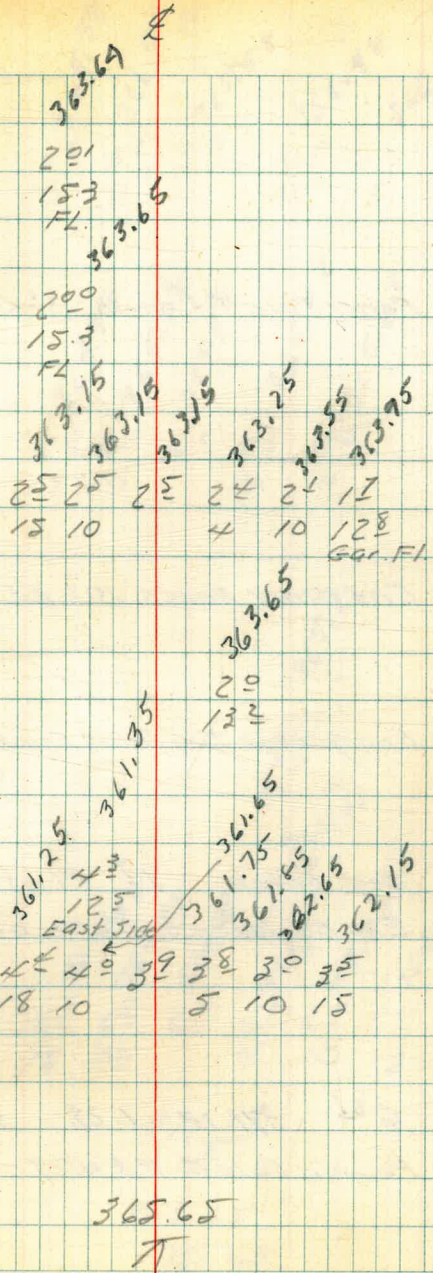 ℄
363.64
2 01
15.3
FL.
363.65
2 00
15.3
FL
363.15 363.15 363.15 363.25 363.55 363.95
2 5 2 5 2 5 2 4 2 1 1 7
15 10 4 10 12 8
Gar. Fl.
363.65
2 0
13 2
361.35
4 3
12 5
East Side
361.25 361.65 361.75 361.85 362.65 362.15
4 4 4 0 3 9 3 8 3 0 3 5
18 10 5 10 15
365.65
⊼